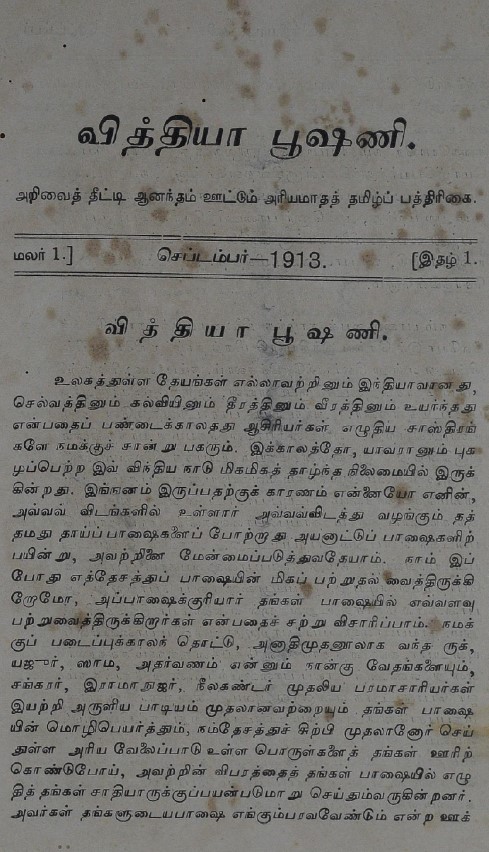 வித்தியா பூஷணி.
அறிவைத் தீட்டி ஆனந்தம் ஊட்டும் அரியமாதத் தமிழ்ப் பத்திரிகை.
மலர் 1.] செப்டம்பர்—1913. [இதழ் 1.
வித்தியா பூஷணி.
உலகத்துள்ள தேயங்கள் எல்லாவற்றினும் இந்தியாவானது,
செல்வத்தினும் கல்வியினும் தீரத்தினும் வீரத்தினும் உயர்ந்தது
என்பதைப் பண்டைக்காலதது ஆசிரியர்கள் எழுதிய சாஸ்திரங்
களே நமக்குச் சான்று பகரும். இக்காலத்தோ, யாவரானும் புக
ழப்பெற்ற இவ் விந்திய நாடு மிகமிகத் தாழ்ந்த நிலைமையில் இருக்
கின்றது. இங்ஙனம் இருப்பதற்குக் காரணம் என்னையோ எனின்,
அவ்வவ் விடங்களில் உள்ளார் அவ்வவ்விடத்து வழங்கும் தத்
தமது தாய்ப்பாஷைகளைப் போற்றாது அயனாட்டுப் பாஷைகளிற்
பயின்று, அவற்றினை மேன்மைப்படுத்துவதேயாம். நாம் இப்
போது எத்தேசத்துப் பாஷையின் மிகப் பற்றுதல் வைத்திருக்கி
றோமோ, அப்பாஷைக்குரியார் தங்கள் பாஷையில் எவ்வளவு
பற்றுவைத்திருக்கிறார்கள் என்பதைச் சற்று விசாரிப்பாம். நமக்
குப் படைப்புக்காலந் தொட்டு, அனாதிமுதனூலாக வந்த ருக்,
யஜுர், ஸாம, அதர்வணம் என்னும் நான்கு வேதங்களையும்,
சங்கரர், இராமாநுஜர், நீலகண்டர் முதலிய பரமாசாரியர்கள்
இயற்றி அருளிய பாடியம் முதலானவற்றையும் தங்கள் பாஷை
யின் மொழிபெயர்த்தும், நம்தேசத்துச் சிற்பி முதலானோர் செய்
துள்ள அரிய வேலைப்பாடு உள்ள பொருள்களைத் தங்கள் ஊரிற்
கொண்டுபோய், அவற்றின் விபரத்தைத் தங்கள் பாஷையில் எழு
தித் தங்கள் சாதியாருக்குப்பயன்படுமாறு செய்தும்வருகின்றனர்.
அவர்கள் தங்களுடையபாஷை எங்கும்பரவவேண்டும் என்ற ஊக்